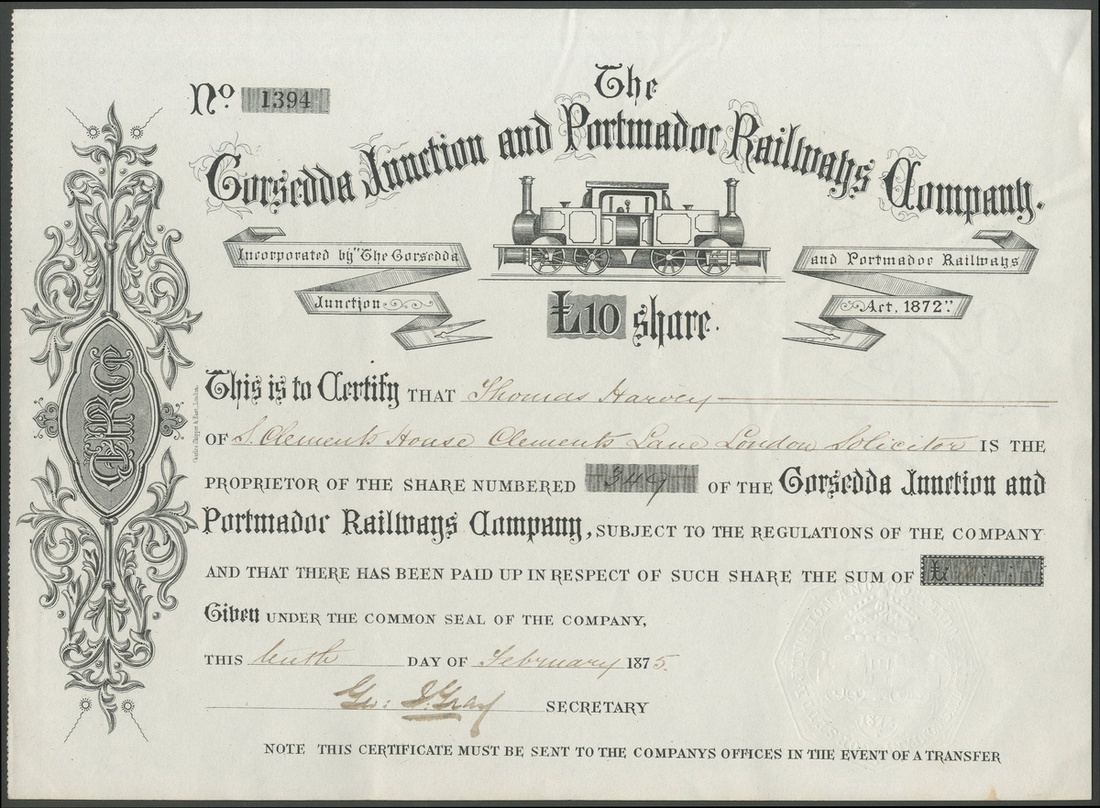 No 1394
The
Gorsedda Junction and Portmadoc Railways Company.
Incorporated by "The Gorsedda
Junction
and Portmadoc Railways
Act. 1872".
£10 share.
This is to Certify THAT Thomas Harvey
OF St. Clements House Clements Lane London Solicitor IS THE
PROPRIETOR OF THE SHARE NUMBERED 349 OF THE Gorsedda Junction and
Portmadoc Railways Company, SUBJECT TO THE REGULATIONS OF THE COMPANY
AND THAT THERE HAS BEEN PAID UP IN RESPECT OF SUCH SHARE THE SUM OF £
Given UNDER THE COMMON SEAL OF THE COMPANY,
THIS tenth DAY OF February 1875.
Geo: J. Gray SECRETARY
NOTE THIS CERTIFICATE MUST BE SENT TO THE COMPANYS OFFICES IN THE EVENT OF A TRANSFER